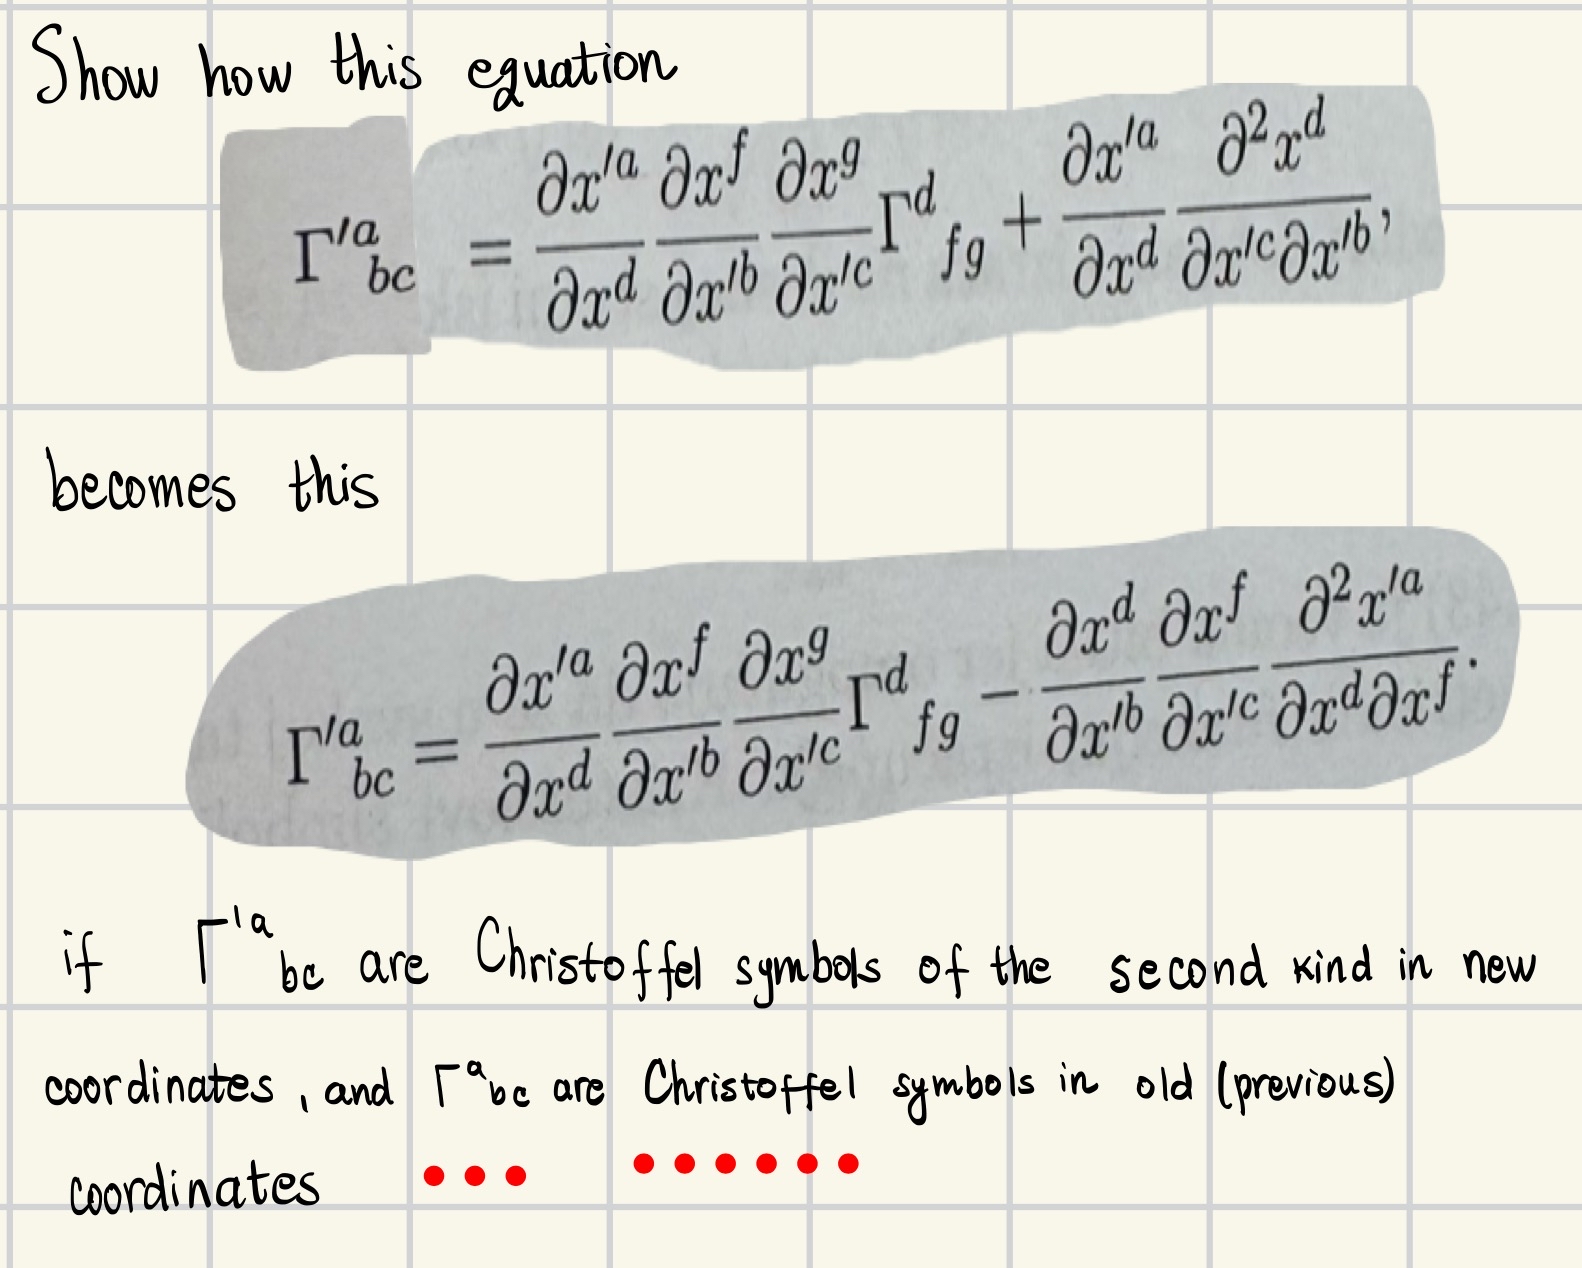 Show how this equation
Γ'ᵃ_bc = ∂x'ᵃ/∂xᵈ ∂xᶠ/∂x'ᵇ ∂xᵍ/∂x'ᶜ Γᵈ_fg + ∂x'ᵃ/∂xᵈ ∂²xᵈ/∂x'ᶜ∂x'ᵇ,
becomes this
Γ'ᵃ_bc = ∂x'ᵃ/∂xᵈ ∂xᶠ/∂x'ᵇ ∂xᵍ/∂x'ᶜ Γᵈ_fg − ∂xᵈ/∂x'ᵇ ∂xᶠ/∂x'ᶜ ∂²x'ᵃ/∂xᵈ∂xᶠ.
if Γ'ᵃ_bc are Christoffel symbols of the second kind in new
coordinates, and Γᵃ_bc are Christoffel symbols in old (previous)
coordinates